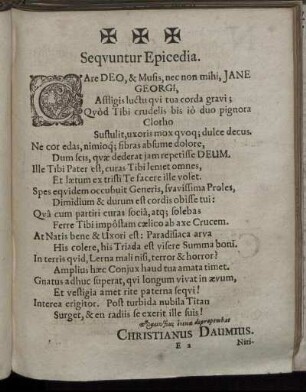 ✠ ✠ ✠
Seqvuntur Epicedia.
CAre DEO, & Musis, nec non mihi, JANE
GEORGI,
Affligis luctu qvi tua corda gravi;
Qvòd Tibi crudelis bis iò duo pignora
Clotho
Sustulit, uxoris mox qvoq; dulce decus.
Ne cor edas, nimioq; fibras absume dolore,
Dum seis, qvæ dederat jam repetisse DEUM.
Ille Tibi Pater est, curas Tibi leniet omnes,
Et lætum ex tristi Te facere ille volet.
Spes eqvidem occubuit Generis, svavissima Proles,
Dimidium & durum est cordis obisse tui:
Qvâ cum partiri curas sociâ, atq; solebas
Ferre Tibi impòstam cœlico ab axe Crucem.
At Natis bene & Uxori est: Paradisiaca arva
His colere, his Triada est visere Summa boni.
In terris qvid, Lerna mali nisi, terror & horror?
Amplius hæc Conjux haud tua amata timet.
Gnatus adhuc superat, qvi longum vivat in ævum,
Et vestigia amet rite paterna seqvi!
Interea erigitor. Post turbida nubila Titan
Surget, & en radiis se exerit ille suis!
CHRISTIANUS DAUMIUS.
E 2
Niti-